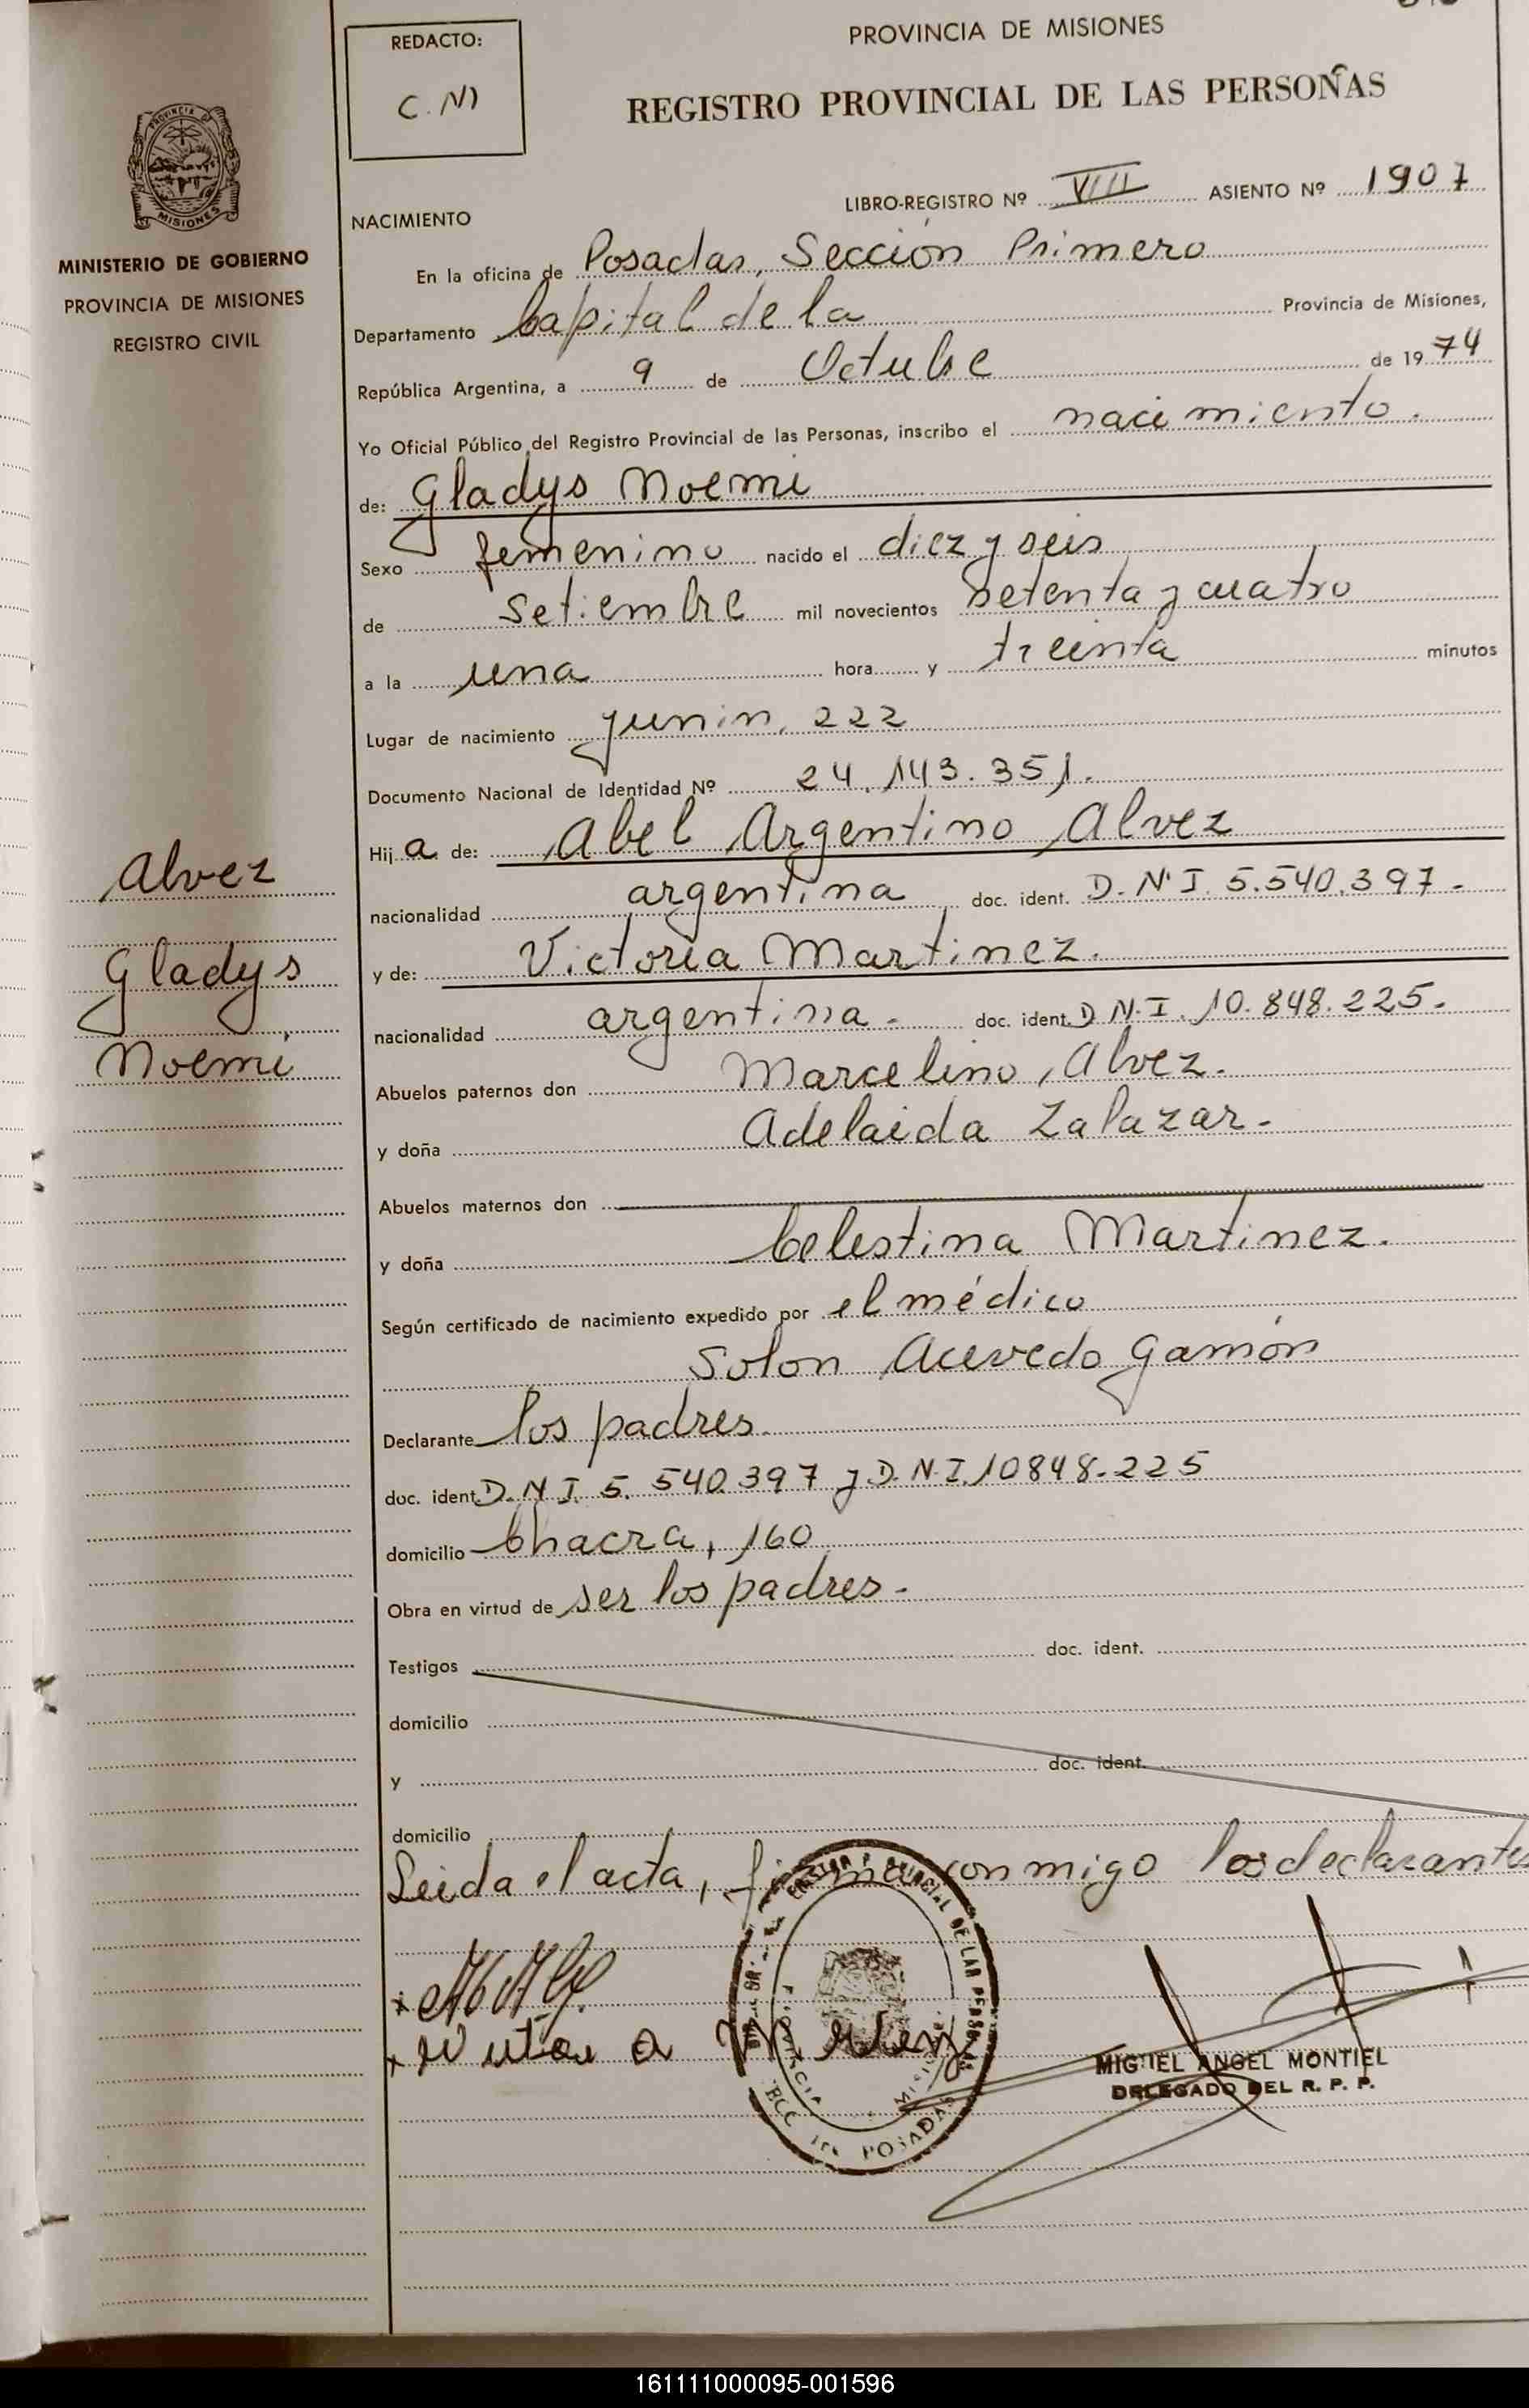 REDACTO:
C. N)
PROVINCIA DE MISIONES
REGISTRO PROVINCIAL DE LAS PERSONAS
PROVINCIA DE
MISIONES
MINISTERIO DE GOBIERNO
PROVINCIA DE MISIONES
REGISTRO CIVIL
LIBRO-REGISTRO Nº VIII ASIENTO Nº 1907
NACIMIENTO
En la oficina de Posadas, Sección Primero
Departamento Capital de la Provincia de Misiones,
República Argentina, a 9 de Octubre de 1974
Yo Oficial Público del Registro Provincial de las Personas, inscribo el nacimiento.
de: Gladys Noemi
Sexo femenino nacido el diez y seis
de setiembre mil novecientos setenta y cuatro
a la una hora y treinta minutos
Lugar de nacimiento Junin, 222
Documento Nacional de Identidad Nº 24.143.351.
Hija de: Abel Argentino Alvez
nacionalidad argentina doc. ident. D.N.I. 5.540.397.-
y de: Victoria Martinez.
nacionalidad argentina.- doc. ident. D.N.I. 10.848.225.-
Abuelos paternos don Marcelino, Alvez.
y doña Adelaida Zalazar.-
Abuelos maternos don
y doña Celestina Martinez.
Según certificado de nacimiento expedido por el médico
Solon Acevedo Gamón
Declarante los padres.
doc. ident. D.N.I. 5.540.397 y D.N.I. 10848.225
domicilio Chacra, 160
Obra en virtud de ser los padres.-
Testigos doc. ident.
domicilio
y doc. ident.
domicilio
Leida el acta, firman conmigo los declarantes
MIGUEL ANGEL MONTIEL
DELEGADO DEL R. P. P.
POSADAS
Alvez
Gladys
Noemi
161111000095-001596